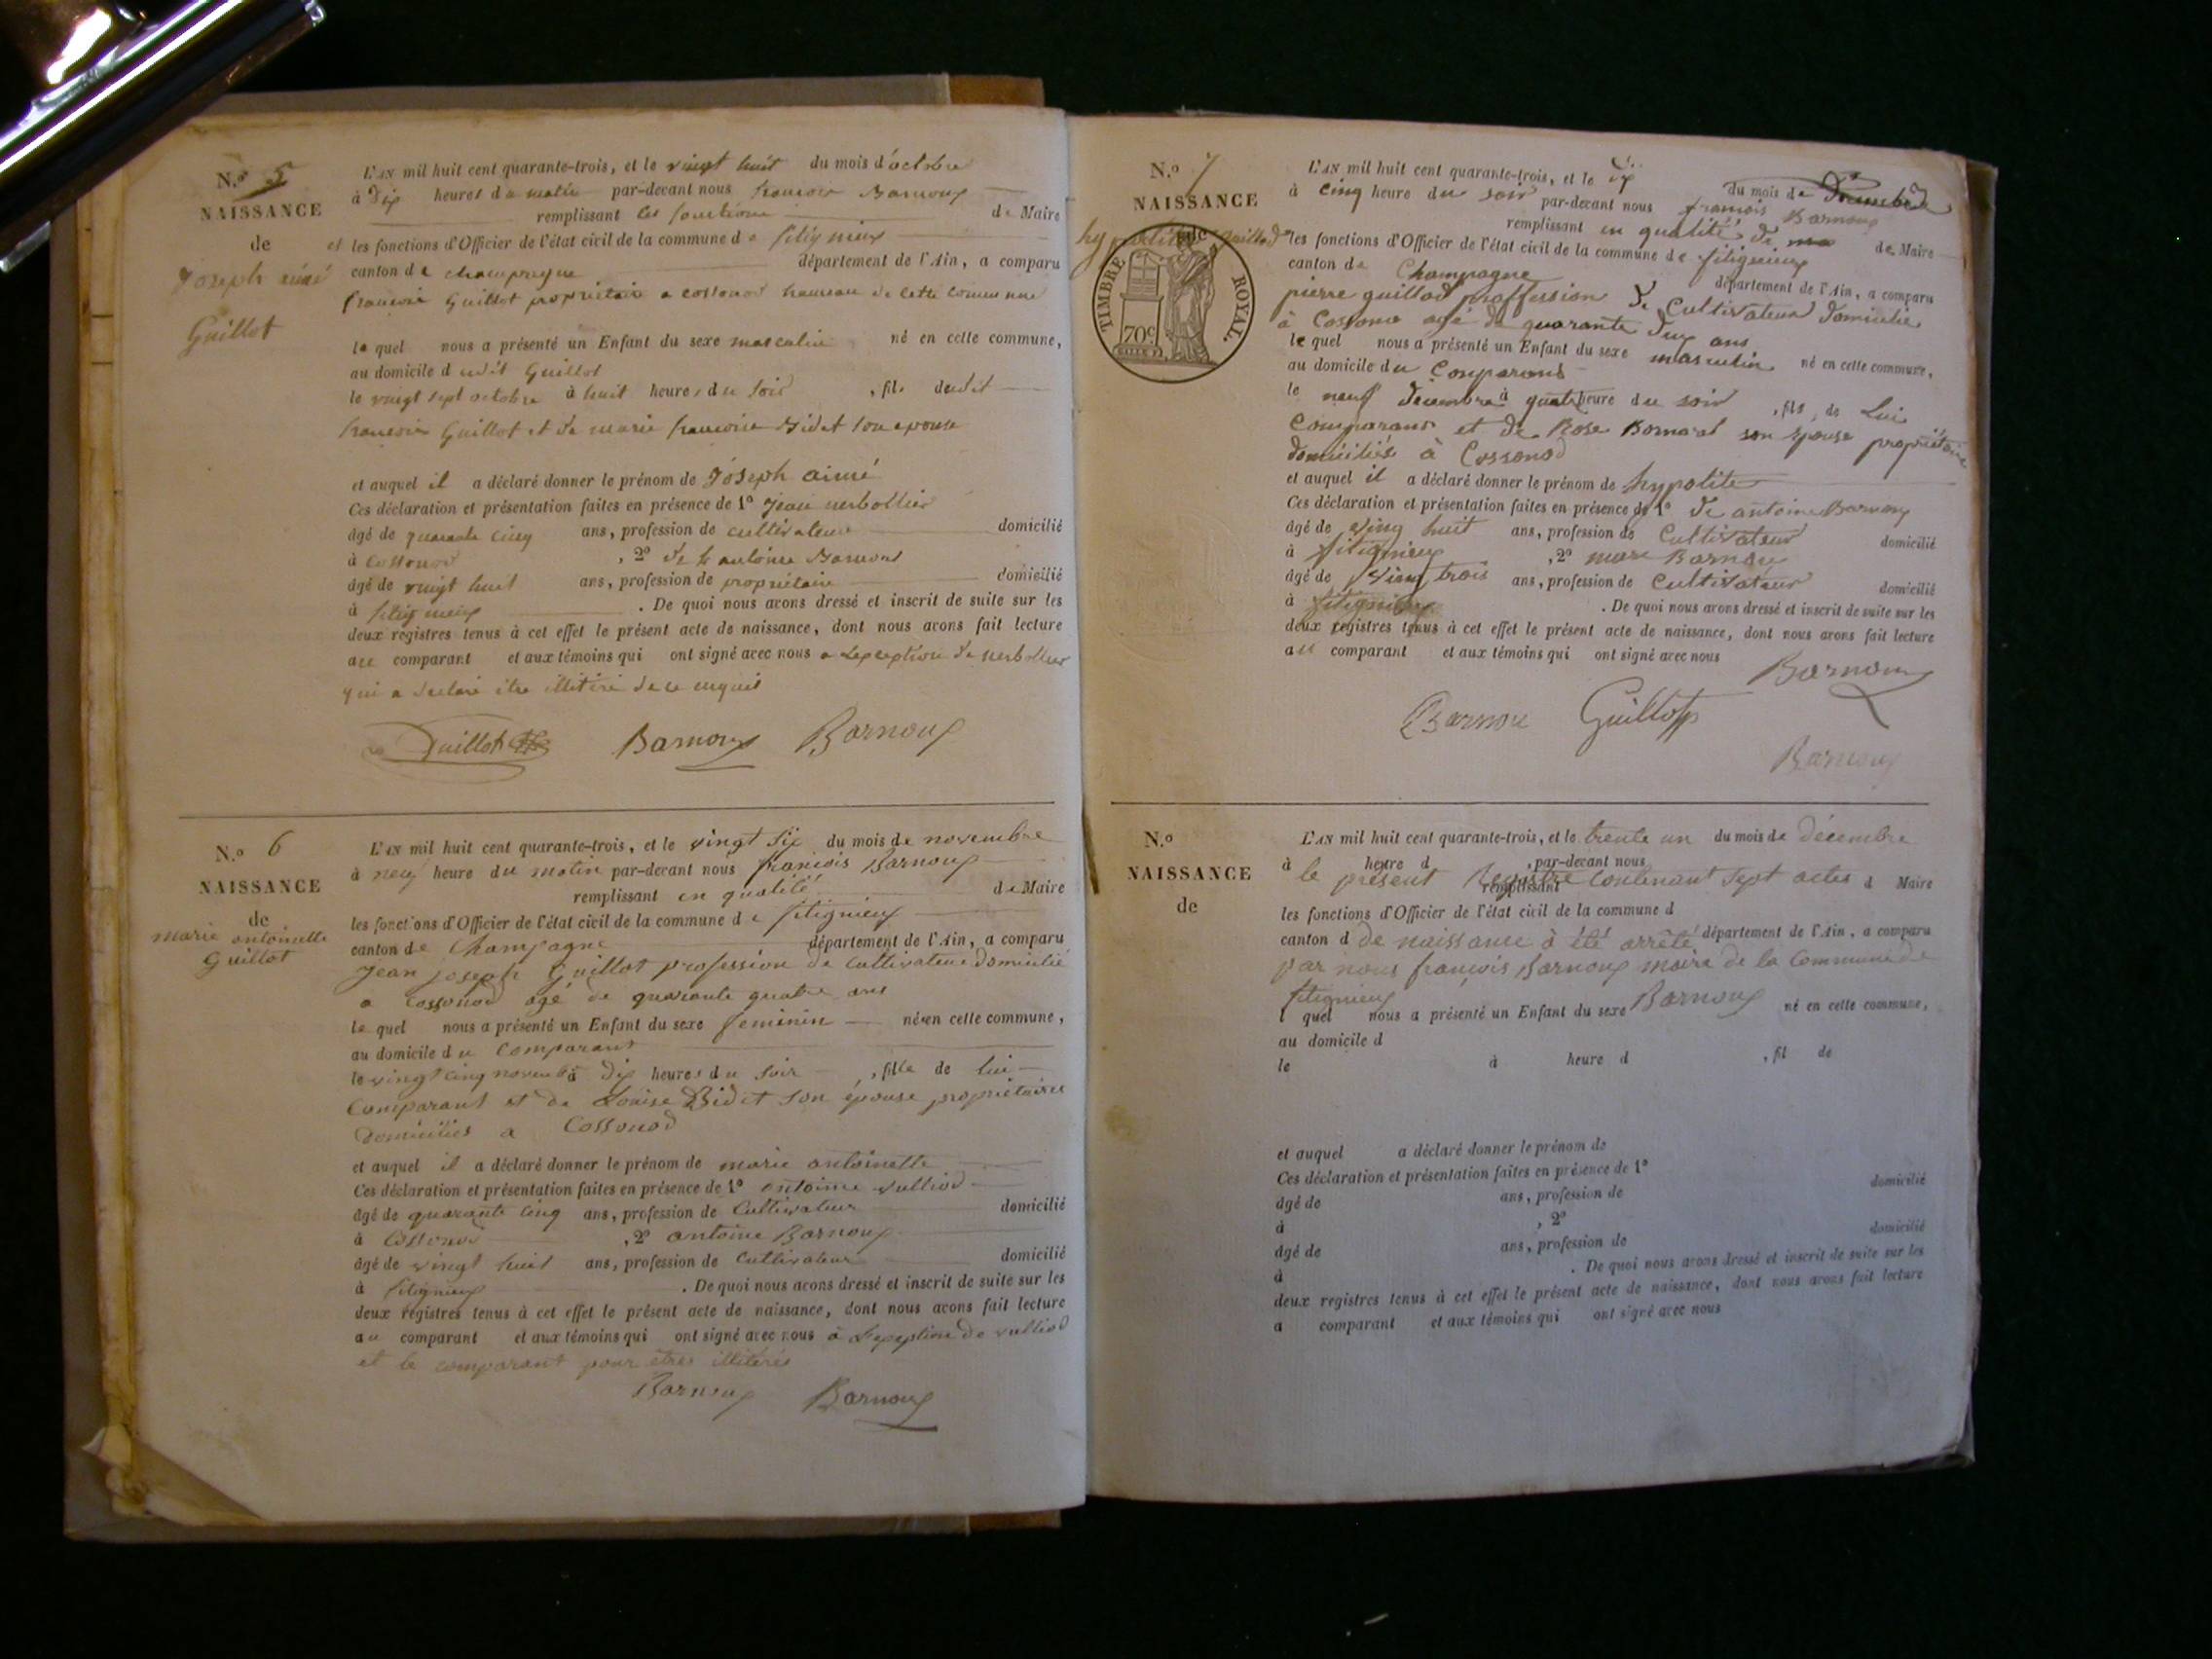 N.o 5
NAISSANCE
de
Joseph aimé
Guillot
L'AN mil huit cent quarante-trois, et le vingt huit du mois d'octobre
à dix heures du matin par-devant nous francois Barnoux
remplissant les fonctions de Maire
et les fonctions d'Officier de l'état civil de la commune de fitignieux
canton de champagne département de l'Ain, a comparu
francois Guillot propriétaire a cossonod hameau de cette commune
lequel nous a présenté un Enfant du sexe masculin né en cette commune,
au domicile dudit Guillot
le vingt sept octobre à huit heures du soir, fils dudit
francois Guillot et de marie francoise Bidet son epouse
et auquel il a déclaré donner le prénom de Joseph aimé
Ces déclaration et présentation faites en présence de 1° Jean
âgé de quarante cinq ans, profession de cultivateur domicilié
à cossonod, 2° de antoine Barnoux
âgé de vingt huit ans, profession de propriétaire domicilié
à fitignieux. De quoi nous avons dressé et inscrit de suite sur les
deux registres tenus à cet effet le présent acte de naissance, dont nous avons fait lecture
au comparant et aux témoins qui ont signé avec nous a lexception de
qui a declaré être illitéré de ce enquis
Guillot Barnoux Barnoux
N.o 6
NAISSANCE
de
marie antoinette
Guillot
L'AN mil huit cent quarante-trois, et le vingt six du mois de novembre
à neuf heure du matin par-devant nous francois Barnoux
remplissant en qualité de Maire
les fonctions d'Officier de l'état civil de la commune de fitignieux
canton de Champagne département de l'Ain, a comparu
Jean joseph Guillot profession de cultivateur domicilié
a cossonod agé de quarante quatre ans
lequel nous a présenté un Enfant du sexe feminin né en cette commune,
au domicile du comparant
le vingt cinq novembre à dix heures du soir, fille de lui
comparant et de Louise Bidet son épouse propriétaires
domiciliés a Cossonod
et auquel il a déclaré donner le prénom de marie antoinette
Ces déclaration et présentation faites en présence de 1° antoine vulliod
âgé de quarante cinq ans, profession de Cultivateur domicilié
à Cossonod, 2° antoine Barnoux
âgé de vingt huit ans, profession de Cultivateur domicilié
à fitignieux. De quoi nous avons dressé et inscrit de suite sur les
deux registres tenus à cet effet le présent acte de naissance, dont nous avons fait lecture
au comparant et aux témoins qui ont signé avec nous à Lexception de vulliod
et le comparant pour êtres illitérés
Barnoux Barnoux
N.o 7
NAISSANCE
de
hypolite Guillod
TIMBRE ROYAL.
70c
L'AN mil huit cent quarante-trois, et le dix du mois de décembre
à cinq heure du soir par-devant nous francois Barnoux
remplissant en qualité de Maire
les fonctions d'Officier de l'état civil de la commune de fitignieux
canton de Champagne département de l'Ain, a comparu
pierre guillod proffession de Cultivateur domicilie
à Cossono agé de quarante deux ans
lequel nous a présenté un Enfant du sexe masculin né en cette commune,
au domicile du Comparant
le neuf decembre à quatre heure du soir, fils de Lui
Comparant et de Rose Bornarel son épouse propriétaire
domiciliés à Cossonod
et auquel il a déclaré donner le prénom de hypolite
Ces déclaration et présentation faites en présence de 1° de antoine Barnoux
âgé de vingt huit ans, profession de Cultivateur domicilié
à fitignieux, 2° marc Barnoux
âgé de vingt trois ans, profession de Cultivateur domicilié
à fitignieux. De quoi nous avons dressé et inscrit de suite sur les
deux registres tenus à cet effet le présent acte de naissance, dont nous avons fait lecture
au comparant et aux témoins qui ont signé avec nous
Barnoux
Barnou Guillot
Barnoux
N.o
NAISSANCE
de
L'AN mil huit cent quarante-trois, et le trente un du mois de décembre
à heure d, par-devant nous
le présent Registre contenant sept actes
remplissant d Maire
les fonctions d'Officier de l'état civil de la commune d
canton d département de l'Ain, a comparu
de naissance à été arrêté
par nous françois Barnoux maire de la commune de
fitignieux Barnoux
l quel nous a présenté un Enfant du sexe né en cette commune,
au domicile d
le à heure d, fil de
et auquel a déclaré donner le prénom de
Ces déclaration et présentation faites en présence de 1°
âgé de ans, profession de domicilié
à, 2°
âgé de ans, profession de domicilié
à. De quoi nous avons dressé et inscrit de suite sur les
deux registres tenus à cet effet le présent acte de naissance, dont nous avons fait lecture
a comparant et aux témoins qui ont signé avec nous